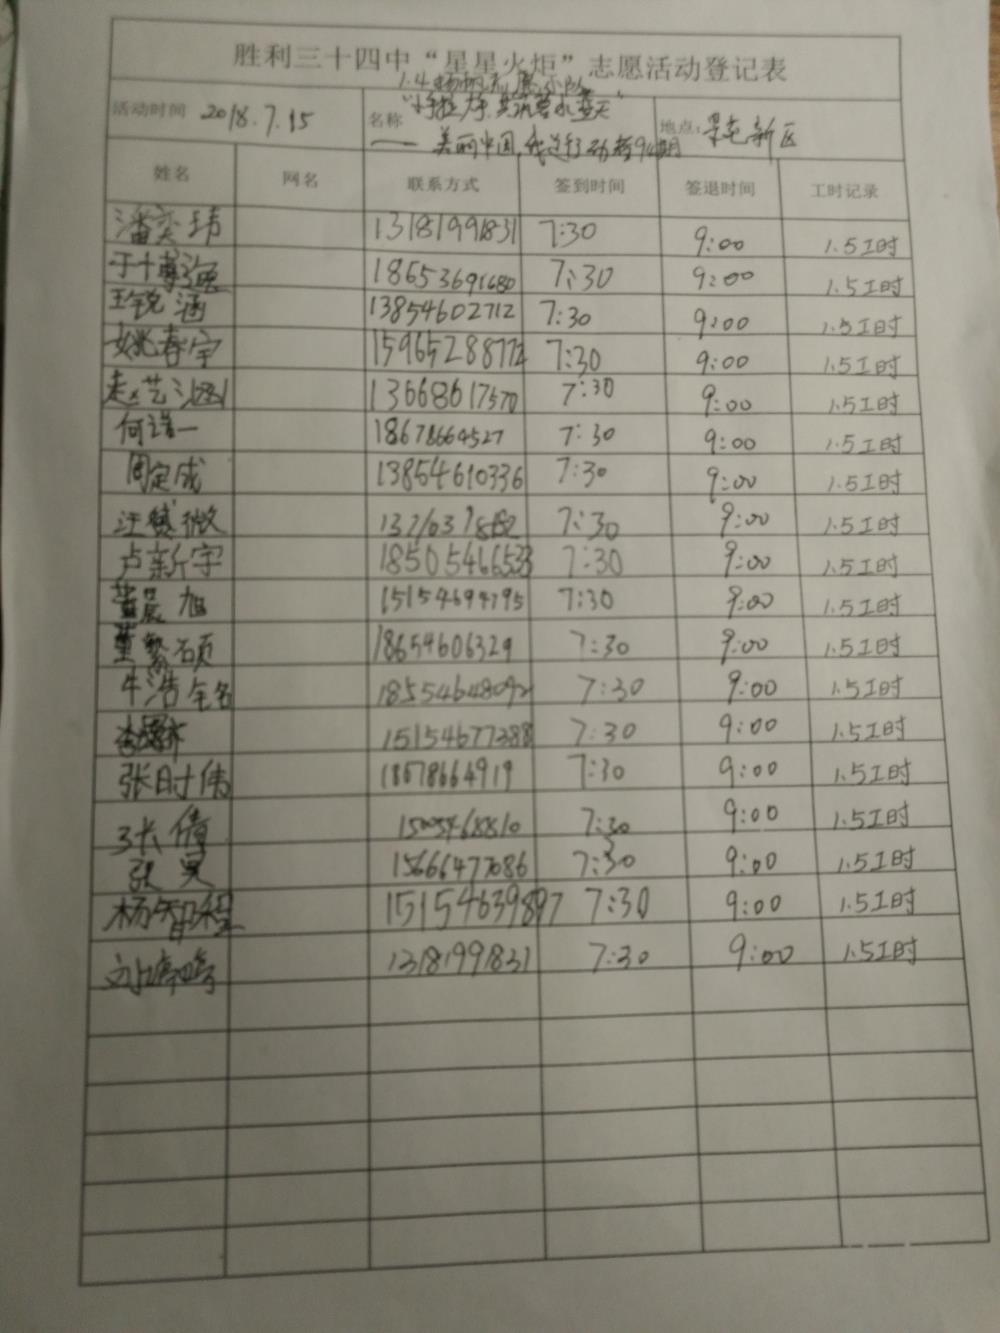 胜利三十四中“星星火炬”志愿活动登记表
1.4扬帆 小队
活动时间 2018.7.15 名称 “小手拉大手.共筑碧水蓝天” 地点: 新区
—— 美丽中国,我是行动者94期
姓名 网名 联系方式 签到时间 签退时间 工时记录
潘奕玮 13181991831 7:30 9:00 1.5工时
于博 18653691680 7:30 9:00 1.5工时
王锐涵 13854602712 7:30 9:00 1.5工时
姚春宇 15965288772 7:30 9:00 1.5工时
赵艺涵 13668617570 7:30 9:00 1.5工时
何诺一 18678664527 7:30 9:00 1.5工时
周定成 13854610336 7:30 9:00 1.5工时
汪 微 7:30 9:00 1.5工时
卢新宇 18505466533 7:30 9:00 1.5工时
董晨旭 15154694795 7:30 9:00 1.5工时
董繁硕 18654606329 7:30 9:00 1.5工时
牛浩铭 18554648092 7:30 9:00 1.5工时
15154677388 7:30 9:00 1.5工时
张时伟 18678664919 7:30 9:00 1.5工时
张倩 15005468810 7:30 9:00 1.5工时
张昊 15666477086 7:30 9:00 1.5工时
杨智程 15154639897 7:30 9:00 1.5工时
刘 鸣 13181991831 7:30 9:00 1.5工时